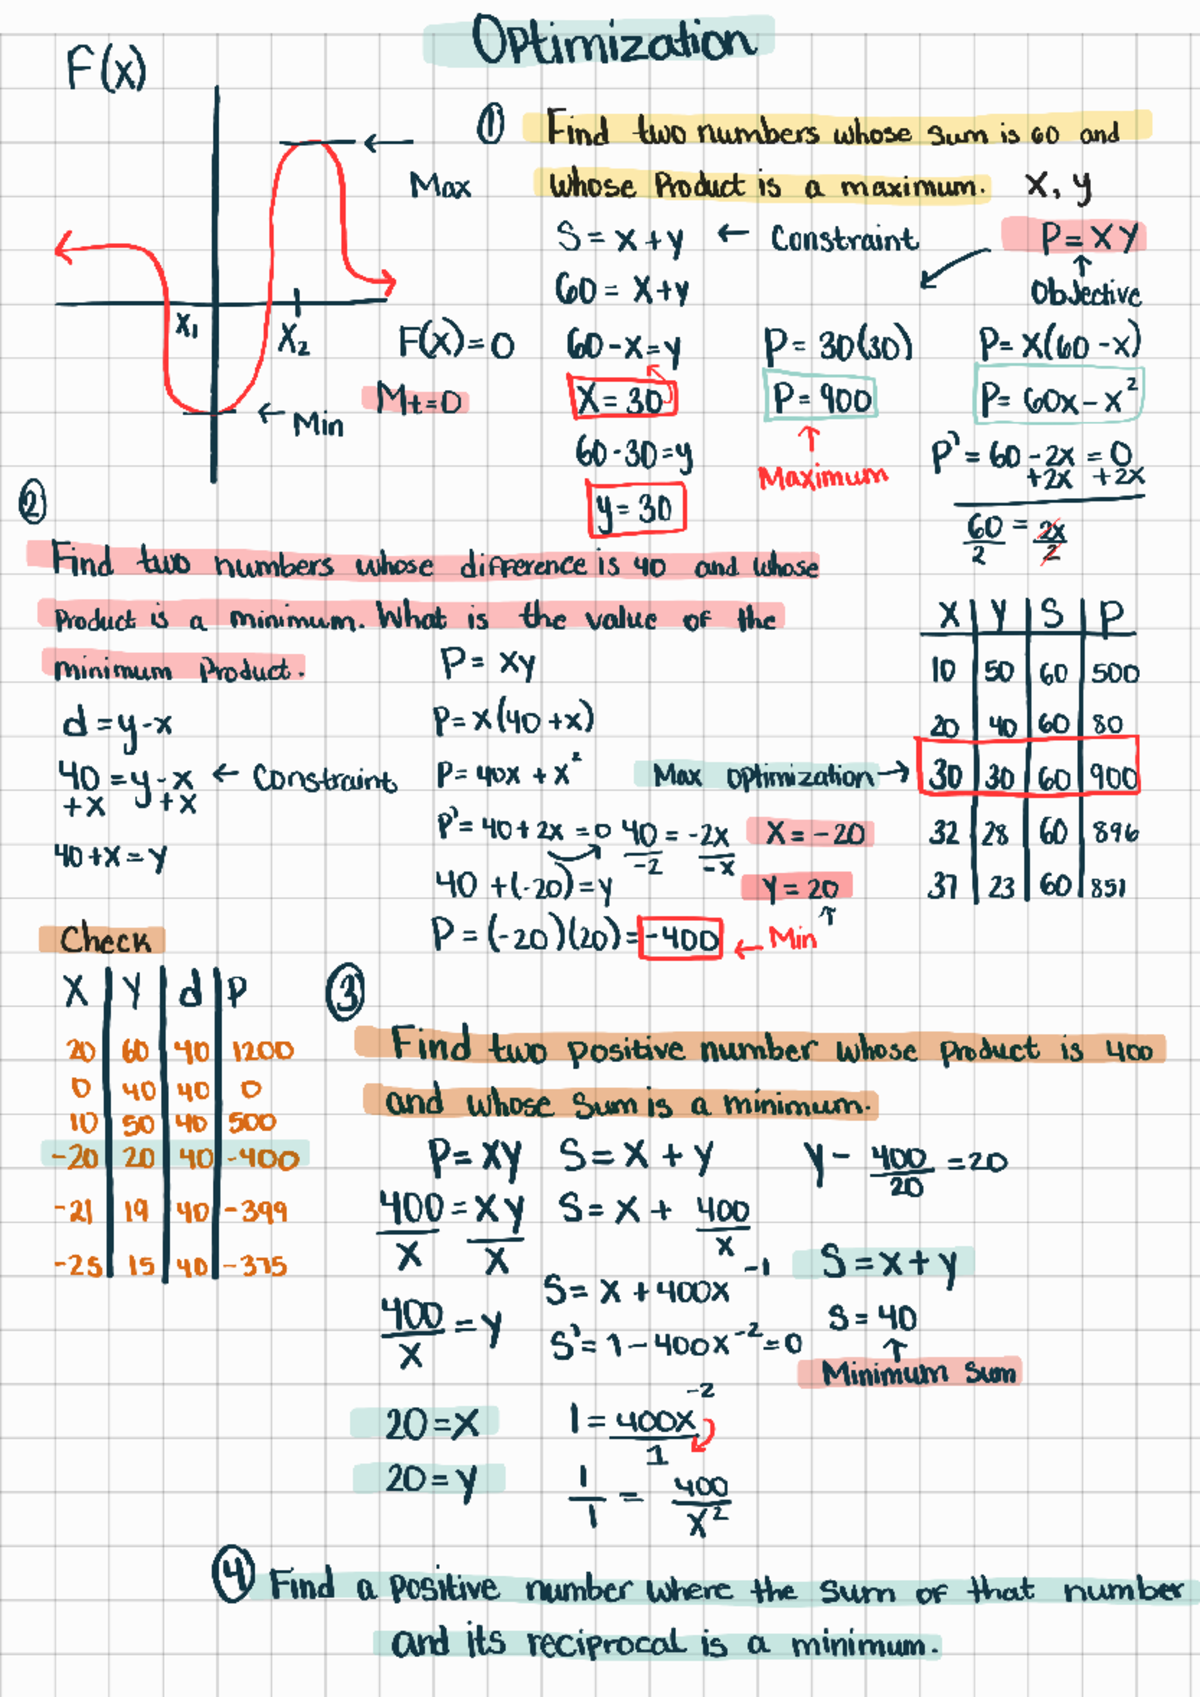 Optimization
F(x)
Max
X₁
X₂
Min
F(x)=0
Mt=0
① Find two numbers whose sum is 60 and
whose Product is a maximum. X, y
S = x + y ← Constraint
P = XY
↑
Objective
60 = x+y
60 - x = y
X = 30
60 - 30 = y
y = 30
P = 30(30)
P = 900
↑
Maximum
P = x(60 - x)
P = 60x - x²
P' = 60 - 2x = 0
+2x +2x
60/2 = 2x/2
X | Y | S | P
10 | 50 | 60 | 500
20 | 40 | 60 | 80
Max optimization → 30 | 30 | 60 | 900
32 | 28 | 60 | 896
37 | 23 | 60 | 851
②
Find two numbers whose difference is 40 and whose
Product is a minimum. What is the value of the
minimum Product.
d = y - x
40 = y - x ← Constraint
+x +x
40 + x = y
P = xy
P = x(40 + x)
P = 40x + x²
P' = 40 + 2x = 0 40/-2 = -2x/-x X = -20
40 + (-20) = y Y = 20
P = (-20)(20) = -400 ← Min
Check
X | Y | d | P
20 | 60 | 40 | 1200
0 | 40 | 40 | 0
10 | 50 | 40 | 500
-20 | 20 | 40 | -400
-21 | 19 | 40 | -399
-25 | 15 | 40 | -375
③
Find two positive number whose product is 400
and whose sum is a minimum.
P = XY S = X + Y
400/X = XY/X
400/X = Y
20 = X
20 = Y
S = X + 400/X
S = X + 400X⁻¹
S' = 1 - 400X⁻² = 0
1 = 400X⁻²/1
1/1 = 400/X²
Y - 400/20 = 20
S = x + y
S = 40
↑
Minimum Sum
④ Find a positive number where the sum of that number
and its reciprocal is a minimum.